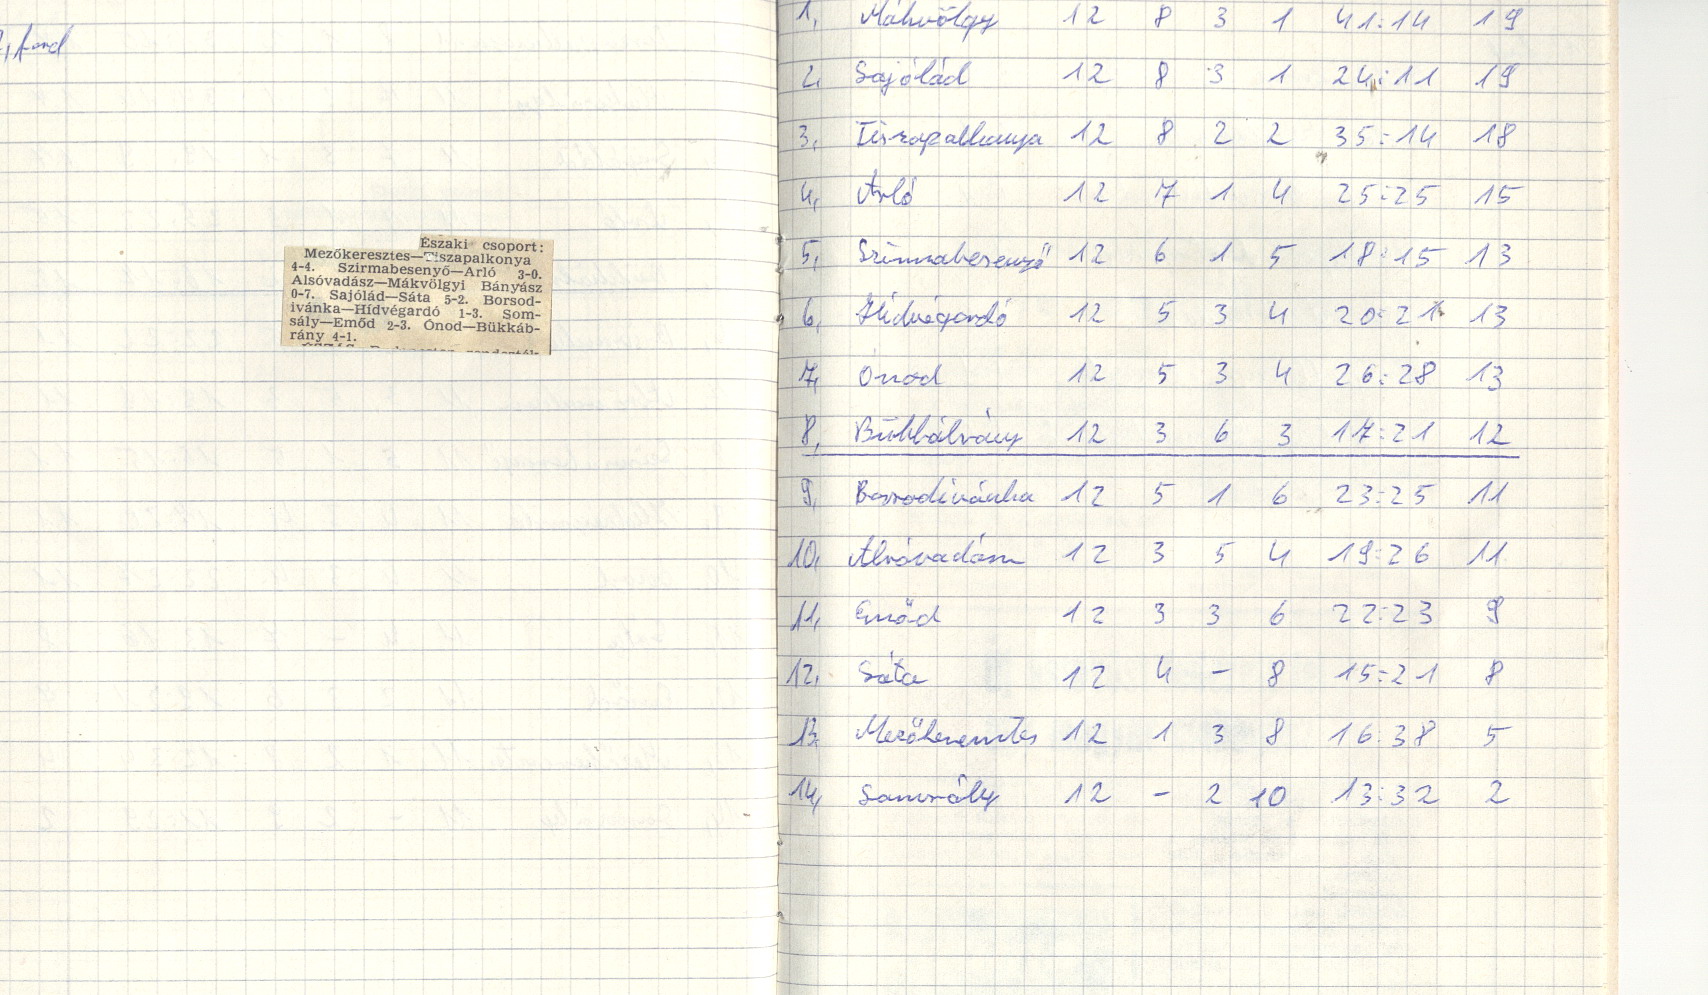 ford
Északi csoport:
Mezőkeresztes—Tiszapalkonya
4-4. Szirmabesenyő—Arló 3-0.
Alsóvadász—Mákvölgyi Bányász
0-7. Sajólád—Sáta 5-2. Borsod-
ivánka—Hídvégardó 1-3. Som-
sály—Emőd 2-3. Ónod—Bükkáb-
rány 4-1.
1, Mákvölgy 12 8 3 1 41:14 19
2, Sajólád 12 8 3 1 24:11 19
3, Tiszapalkonya 12 8 2 2 35:14 18
4, Arló 12 7 1 4 25:25 15
5, Szirmabesenyő 12 6 1 5 18:15 13
6, Hídvégardó 12 5 3 4 20:21 13
7, Ónod 12 5 3 4 26:28 13
8, Bükkábrány 12 3 6 3 17:21 12
9, Borsodivánka 12 5 1 6 23:25 11
10, Alsóvadász 12 3 5 4 19:26 11
11, Emőd 12 3 3 6 22:23 9
12, Sáta 12 4 – 8 15:21 8
13, Mezőkeresztes 12 1 3 8 16:38 5
14, Somsály 12 – 2 10 13:32 2